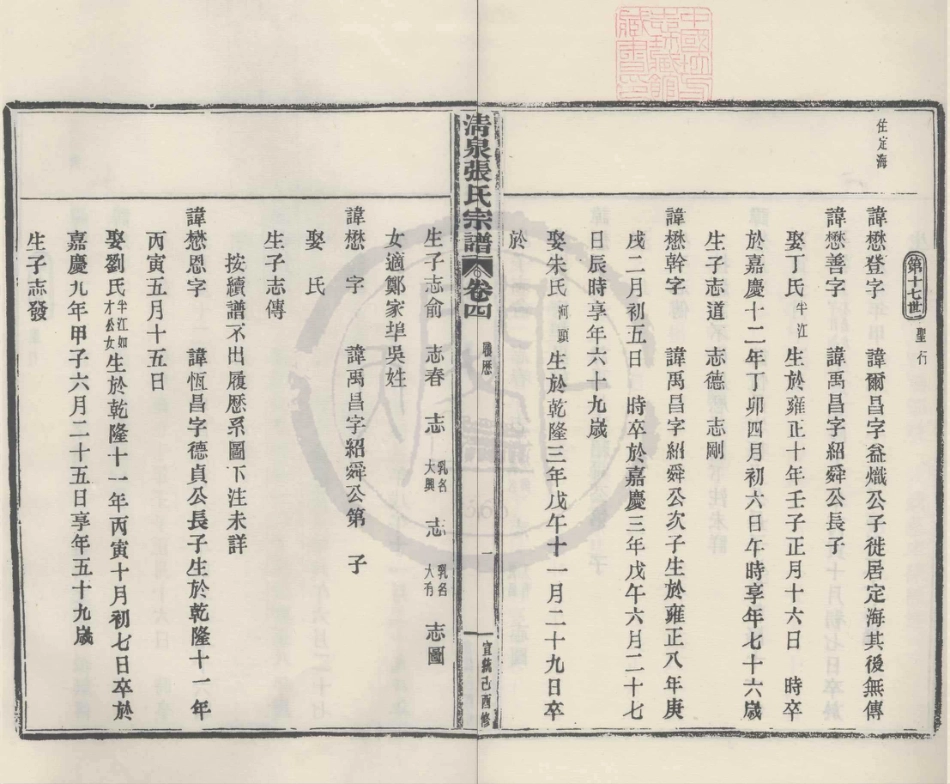 住定海
第十七世 聖行
諱懋登字 諱爾昌字益熾公子徙居定海其後無傳
諱懋善字 諱禹昌字紹舜公長子
娶丁氏半江生於雍正十年壬子正月十六日 時卒
於嘉慶十二年丁卯四月初六日午時享年七十六歲
生子志道 志德 志剛
諱懋幹字 諱禹昌字紹舜公次子生於雍正八年庚
戌二月初五日 時卒於嘉慶三年戊午六月二十七
日辰時享年六十九歲
娶朱氏河頭生於乾隆三年戊午十一月二十九日卒
於
清泉張氏宗譜 卷四 履歷 一 宣統己酉修
生子志俞 志春 志乳名大興 志乳名大有 志圖
女適鄭家埠吳姓
諱懋 字 諱禹昌字紹舜公第 子
娶 氏
生子志傳
按續譜不出履歷系圖下注未詳
諱懋恩字 諱恆昌字德貞公長子生於乾隆十一年
丙寅五月十五日
娶劉氏半江如才公女生於乾隆十一年丙寅十月初七日卒於
嘉慶九年甲子六月二十五日享年五十九歲
生子志發